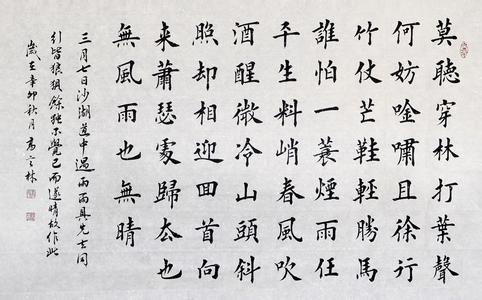 莫聽穿林打葉聲
何妨唫嘯且徐行
竹仗芒鞋輕勝馬
誰怕一蓑煙雨任
平生料峭春風吹
酒醒微冷山頭斜
照却相迎回首向
来蕭瑟處歸去也
無風雨也無晴
三月七日沙湖道中遇雨雨具先去同
引皆狼狽餘獨不覺已而遂晴故作此
歲在辛卯秋月高林